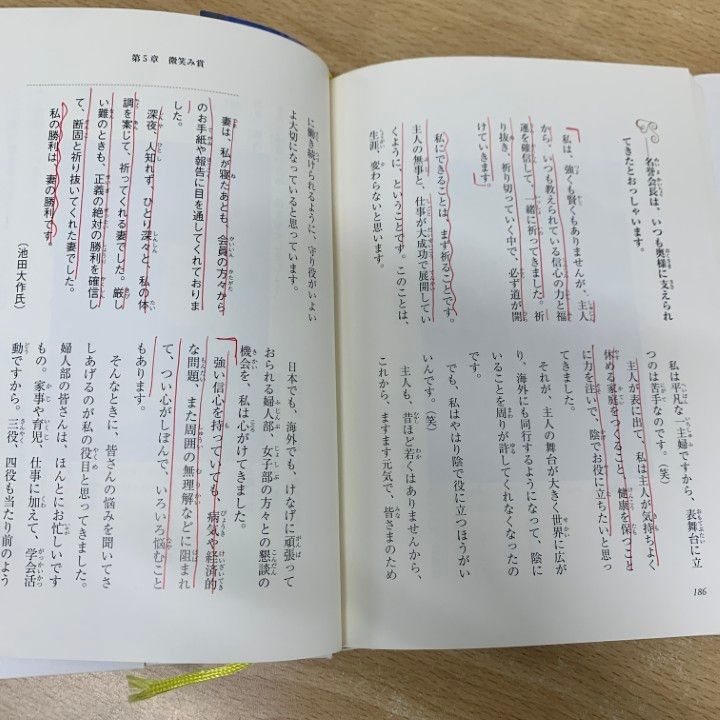 ――名誉会長は、いつも奥様に支えられ
てきたとおっしゃいます。
私は、強くも賢くもありませんが、主人
から、いつも教えられている信心の力と福
運を確信して、一緒に祈ってきました。祈
り抜き、祈り切っていく中で、必ず道が開
けていきます。
私にできることは、まず祈ることです。
主人の無事と、仕事が大成功で展開してい
くように、ということです。このことは、
生涯、変わらないと思います。
私は平凡な一主婦ですから、表舞台に立
つのは苦手なのです。(笑)
主人が表に出て、私は主人が気持ちよく
休める家庭をつくること、健康を保つこと
に力を注いで、陰でお役に立ちたいと思っ
てきました。
それが、主人の舞台が大きく世界に広が
り、海外にも同行するようになって、陰に
いることを周りが許してくれなくなったの
です。
でも、私はやはり陰で役に立つほうがい
いんです。(笑)
主人も、昔ほど若くはありませんから、
これから、ますます元気で、皆さまのため
186
第5章 微笑み賞
に働き続けられるように、守り役がいよい
よ大切になっていると思っています。
妻は、私が寝たあとも、会員の方々から
のお手紙や報告に目を通してくれておりま
した。
深夜、人知れず、ひとり深々と、私の体
調を案じて、祈ってくれる妻でした。厳し
い難のときも、正義の絶対の勝利を確信し
て、断固と祈り抜いてくれた妻でした。
私の勝利は、妻の勝利です。
(池田大作氏)
日本でも、海外でも、けなげに頑張って
おられる婦人部、女子部の方々との懇談の
機会を、私は心がけてきました。
強い信心を持っていても、病気や経済的
な問題、また周囲の無理解などに阻まれ
て、つい心がしぼんで、いろいろ悩むこと
もあります。
そんなときに、皆さんの悩みを聞いてさ
しあげるのが私の役目と思ってきました。
婦人部の皆さんは、ほんとにお忙しいです
もの。家事や育児、仕事に加えて、学会活
動ですから。三役、四役も当たり前のよう